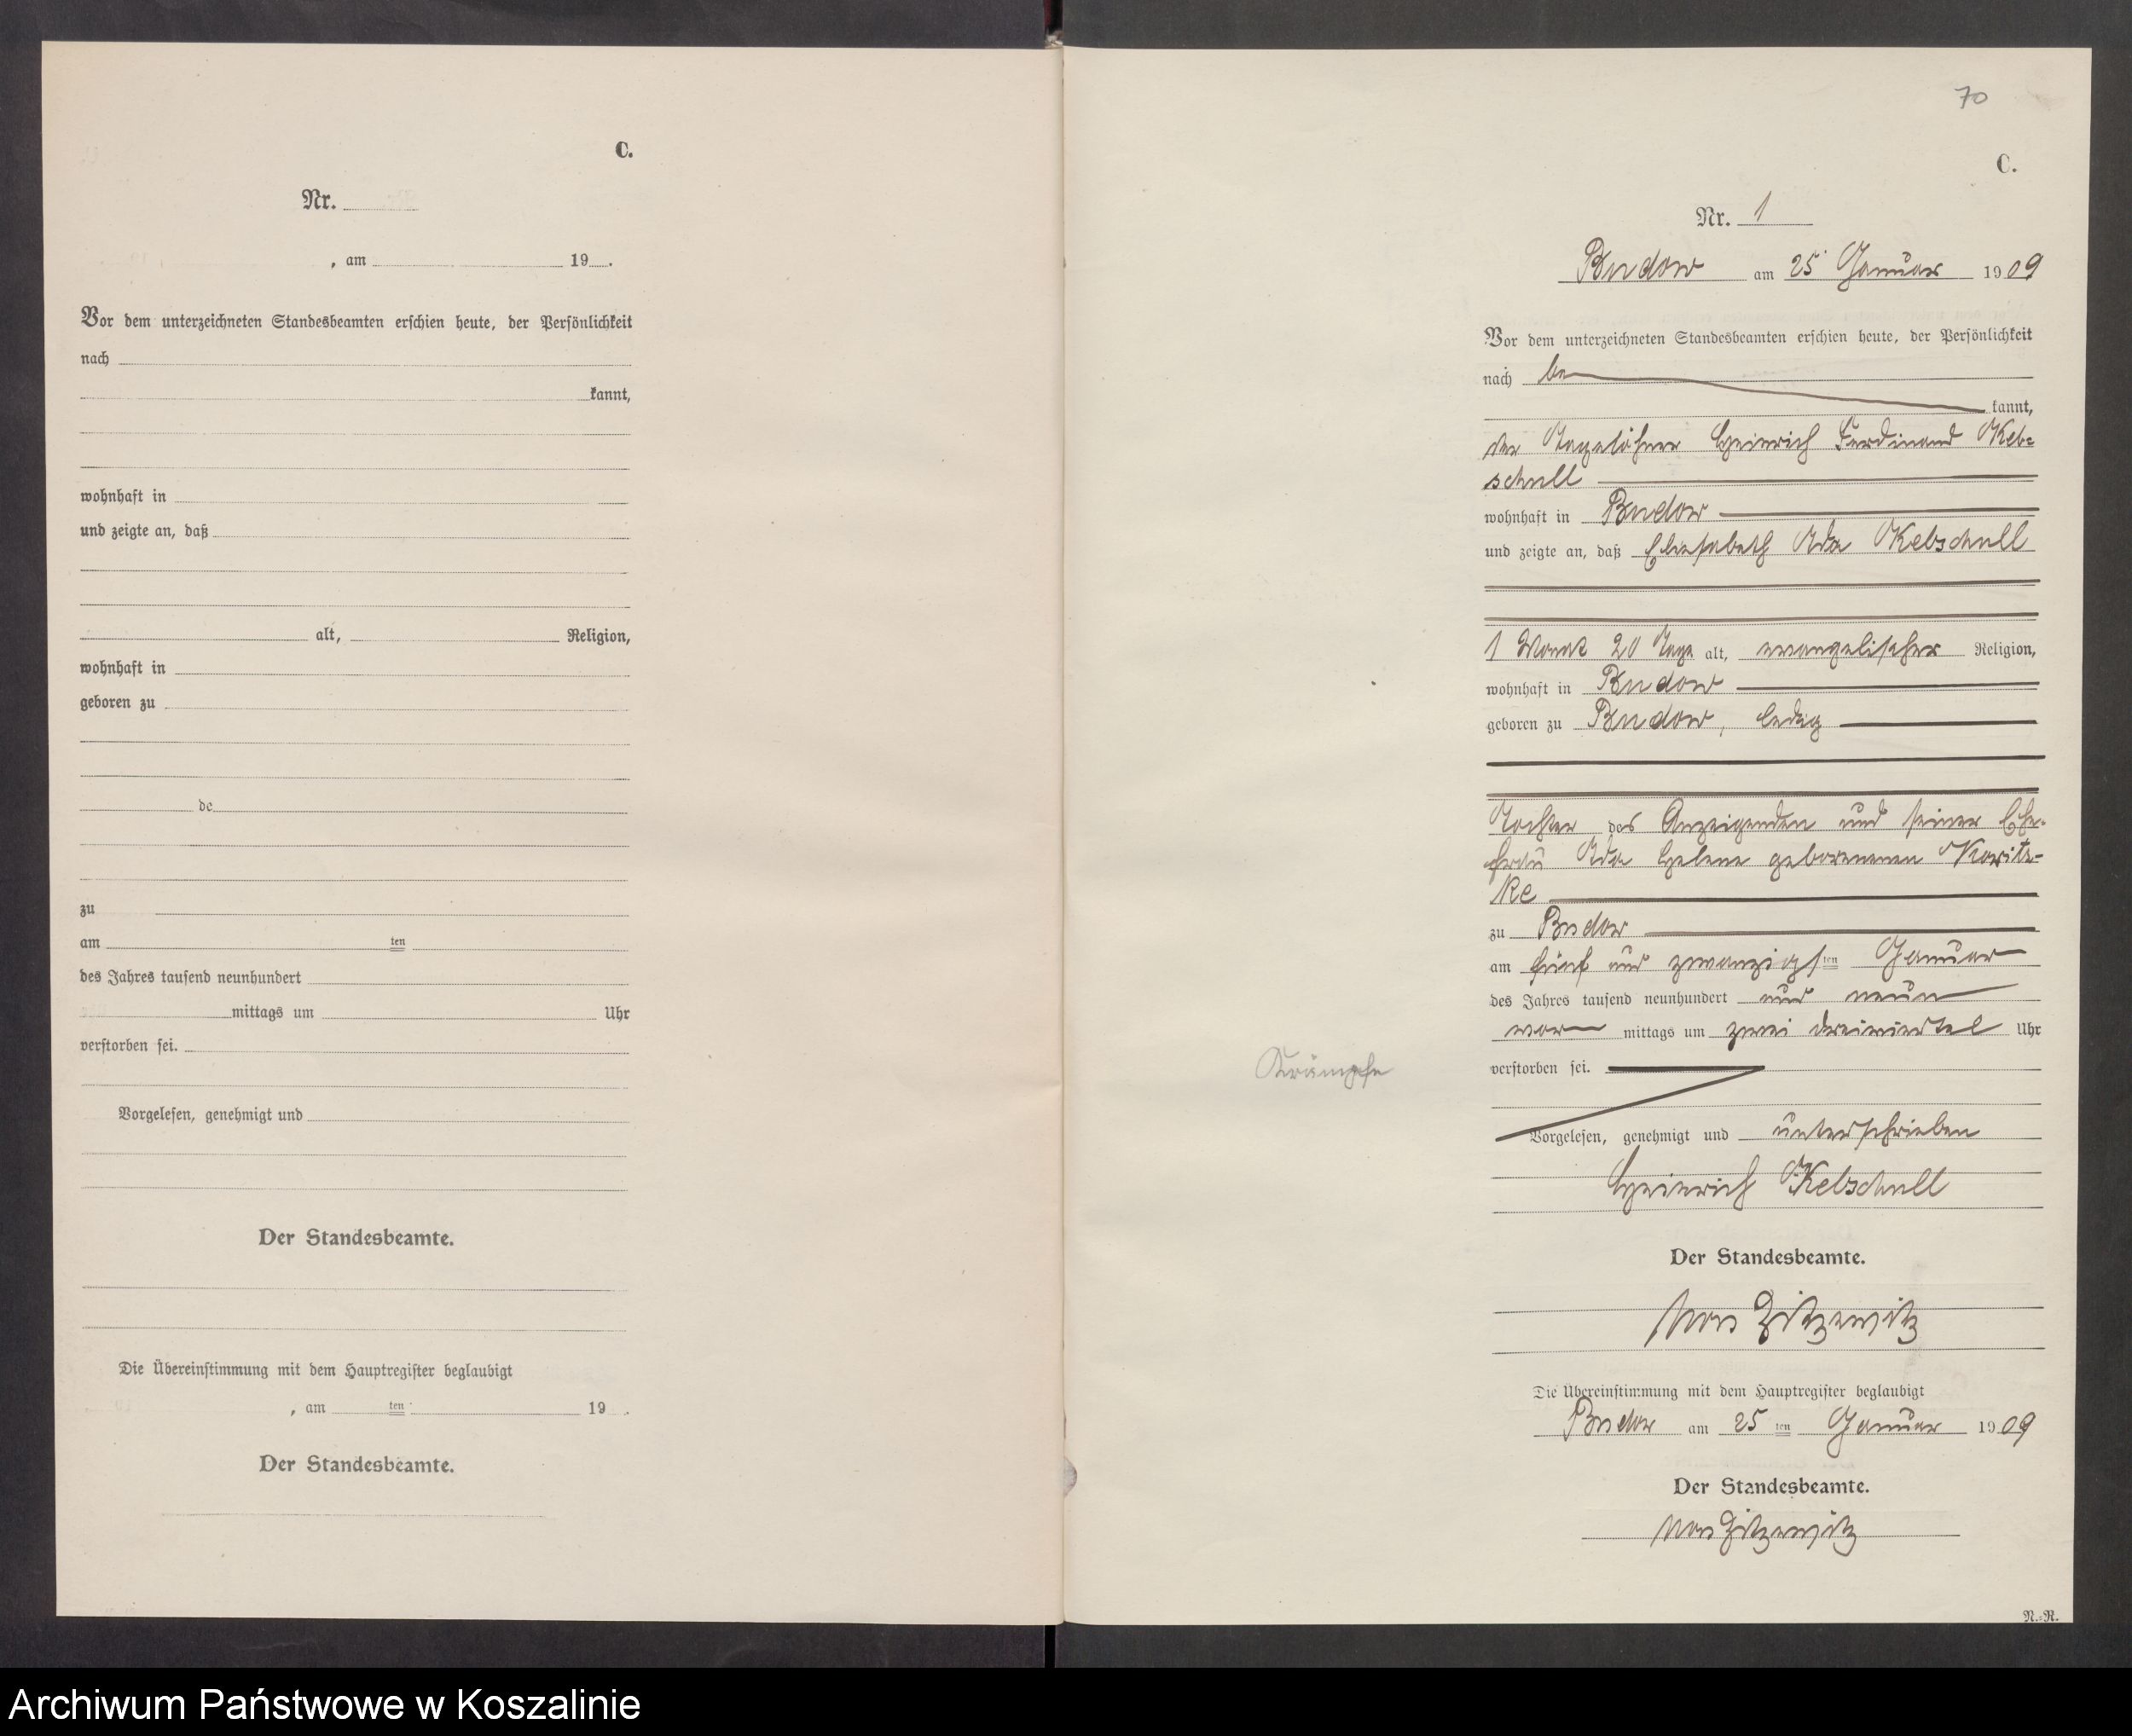 C.
Nr.
, am 19 .
Vor dem unterzeichneten Standesbeamten erschien heute, der Persönlichkeit
nach
kannt,
wohnhaft in
und zeigte an, daß
alt, Religion,
wohnhaft in
geboren zu
de
zu
am ten
des Jahres tausend neunhundert
mittags um Uhr
verstorben sei.
Vorgelesen, genehmigt und
Der Standesbeamte.
Die Übereinstimmung mit dem Hauptregister beglaubigt
, am ten 19 .
Der Standesbeamte.
70
C.
Nr. 1
Budow am 25. Januar 1909
Vor dem unterzeichneten Standesbeamten erschien heute, der Persönlichkeit
nach be
kannt,
der Tagelöhner Heinrich Ferdinand Keb=
schull
wohnhaft in Budow
und zeigte an, daß Elisabeth Ida Kebschull
1 Monat 20 Tage alt, evangelischer Religion,
wohnhaft in Budow
geboren zu Budow, ledig
Tochter des Anzeigenden und seiner Ehe-
frau Ida Helene geborenenen Korit-
ke
zu Budow
am fünf und zwanzigsten Januar
des Jahres tausend neunhundert und neun
vor mittags um zwei dreiviertel Uhr
verstorben sei.
Krämpfe
Vorgelesen, genehmigt und unterschrieben
Heinrich Kebschull
Der Standesbeamte.
von Zitzewitz
Die Übereinstimmung mit dem Hauptregister beglaubigt
Budow am 25 ten Januar 1909
Der Standesbeamte.
von Zitzewitz
N.-R.
Archiwum Państwowe w Koszalinie